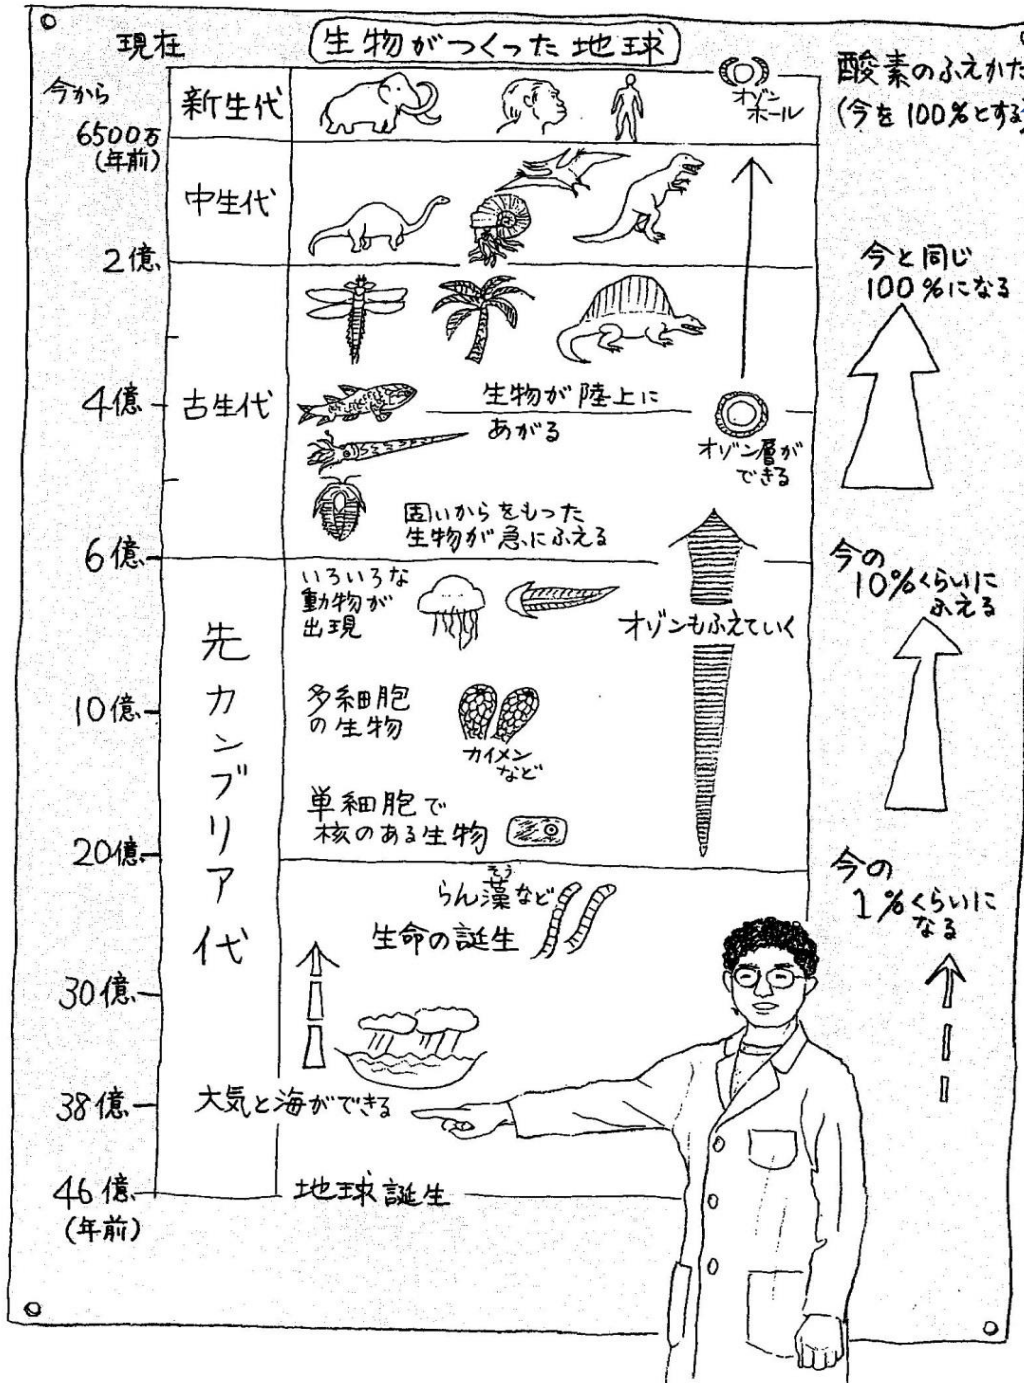 生物がつくった地球
現在
今から
6500万
(年前)
2億
4億
6億
10億
20億
30億
38億
46億
(年前)
新生代
中生代
古生代
先カンブリア代
オゾン
ホール
生物が陸上に
あがる
オゾン層が
できる
固いからをもった
生物が急にふえる
いろいろな
動物が
出現
オゾンもふえていく
多細胞
の生物
カイメン
など
単細胞で
核のある生物
そう
らん藻など
生命の誕生
大気と海ができる
地球誕生
酸素のふえかた
(今を100%とする)
今と同じ
100%になる
今の
10%くらいに
ふえる
今の
1%くらいに
なる